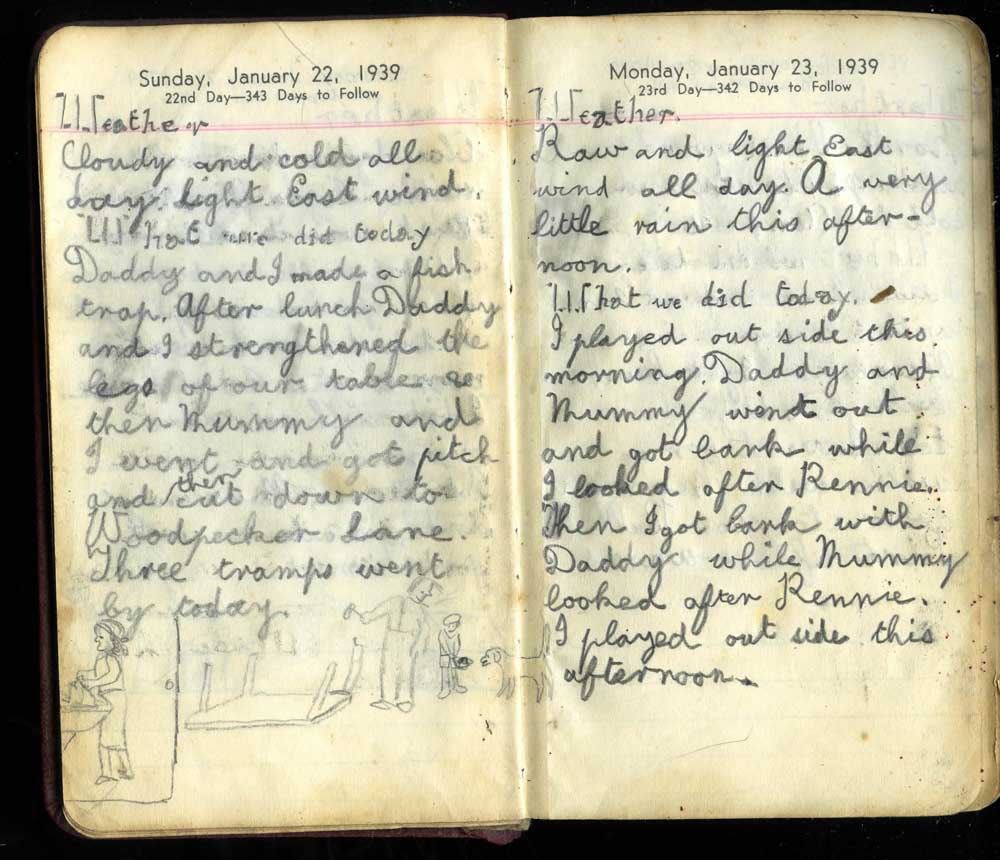 Sunday, January 22, 1939
22nd Day—343 Days to Follow
Weather
Cloudy and cold all
day. light East wind.
What we did today
Daddy and I made a fish
trap. After lunch Daddy
and I strengthened the
legs of our table
then Mummy and
I went and got pitch
then
and cut down to
Woodpecker Lane.
Three tramps went
by today.
Monday, January 23, 1939
23rd Day—342 Days to Follow
Weather.
Raw and light East
wind all day. A very
little rain this after-
noon.
What we did today.
I played out side this
morning. Daddy and
Mummy went out
and got bark while
I looked after Rennie.
Then I got bark with
Daddy while Mummy
looked after Rennie.
I played out side this
afternoon.